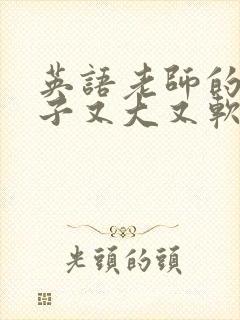 英語老師的
子又大又軟
光頭的頭